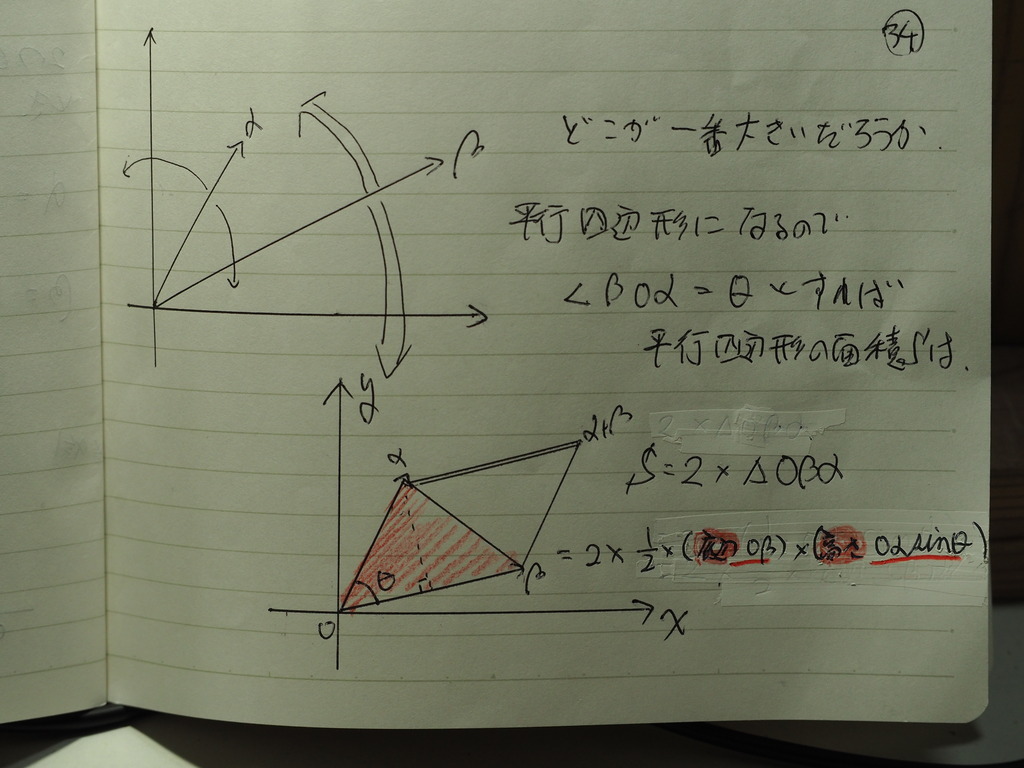 34
α
β
どこが一番大きいだろうか.
平行四辺形になるので
∠βOα = θ とすれば
平行四辺形の面積Sは.
y
α
α+β
S = 2 × △Oβα
= 2 × 1/2 × (底辺 Oβ) × (高さ Oα sinθ)
θ
β
O
x